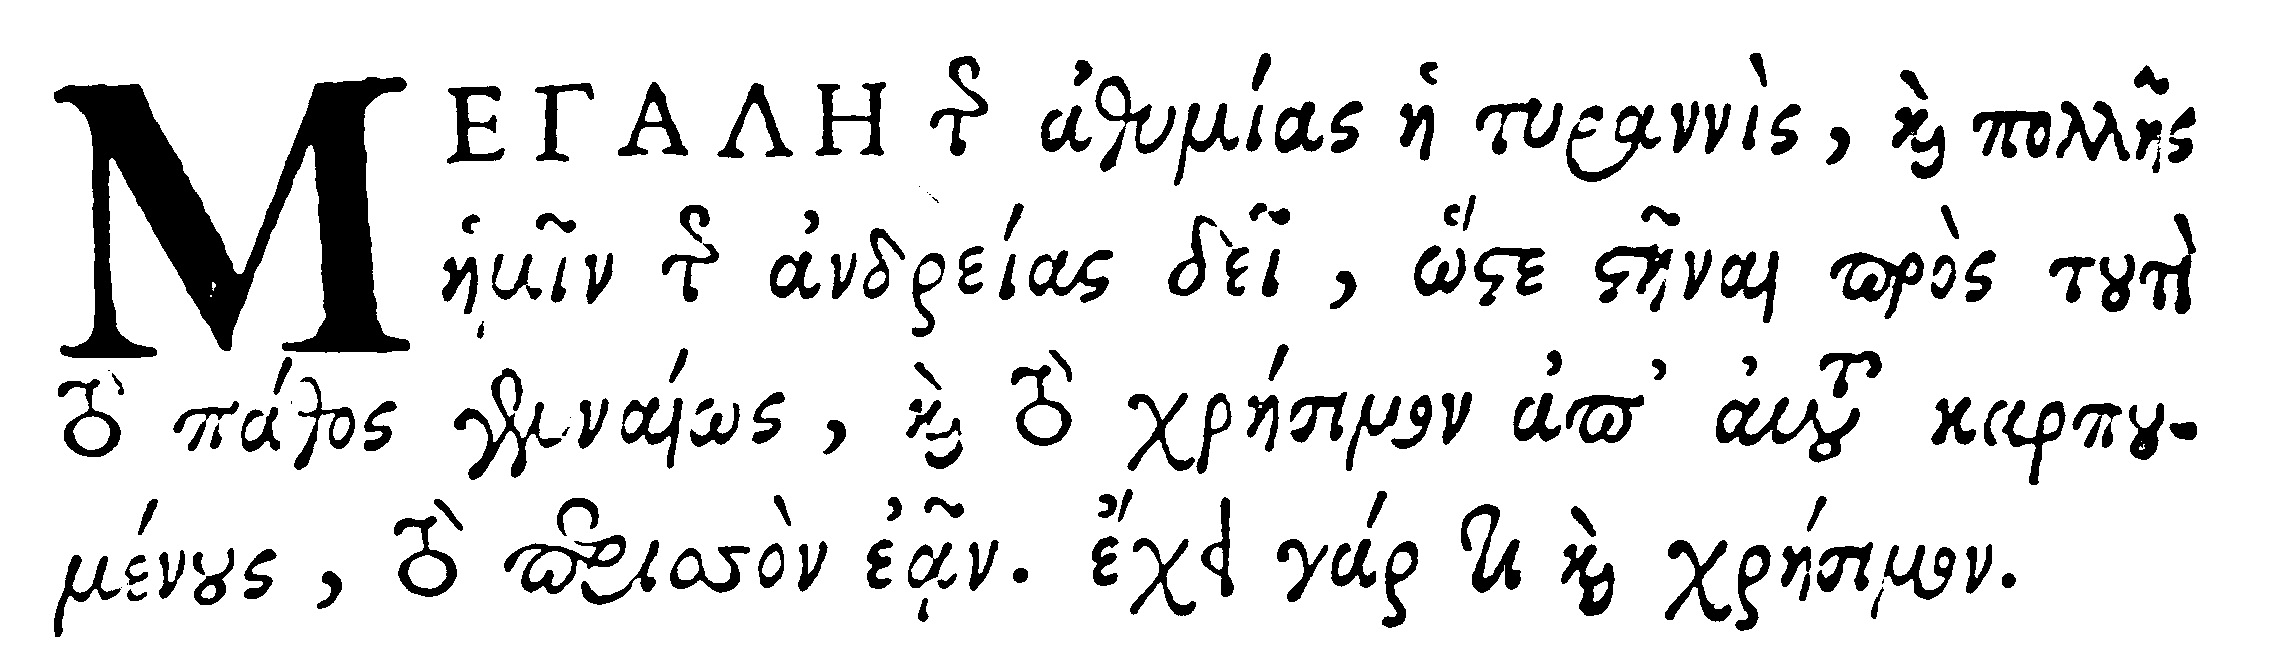 ΜΕΓΑΛΗ τῆς ἀθυμίας ἡ τυραννὶς, καὶ πολλῆς
ἡμῖν τῆς ἀνδρείας δεῖ, ὥστε στῆναι πρὸς τουτὶ
τὸ πάθος γενναίως, καὶ τὸ χρήσιμον ἀπ' αὐτοῦ καρπου-
μένους, τὸ περιττὸν ἐᾷν. ἔχει γάρ τι καὶ χρήσιμον.